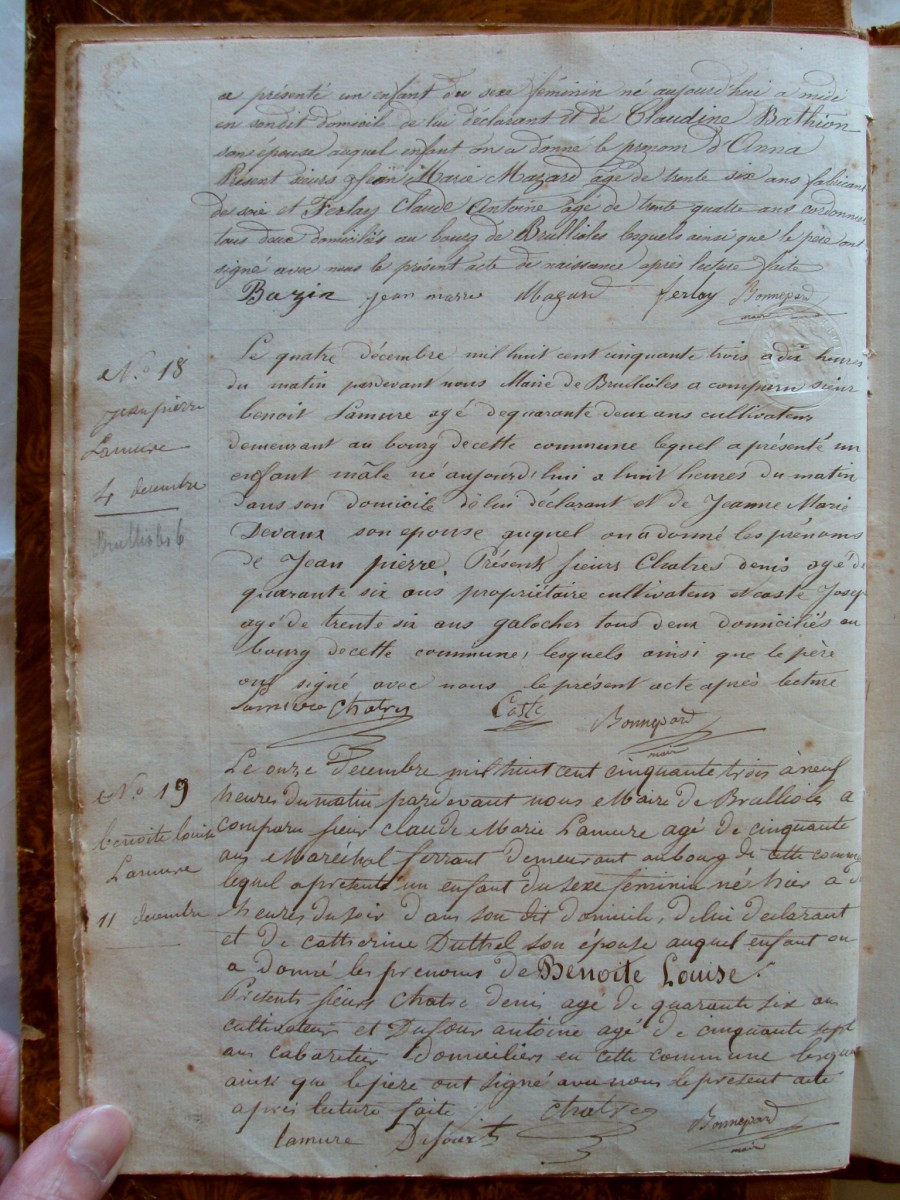 a présenté un enfant du sexe féminin né aujourd'huie a midi
en sondit domicile de lui déclarant et de Claudine Bathion
son epouse auquel enfant on a donné le prenom d'Anna
Présent sieurs Jean Marie Mazard agé de trente six ans fabricant
de soie et Ferlay Claude Antoine agé de trente quatre ans cordonnier
tous deux domiciliés au bourg de Brullioles lesquels ainsi que le père ont
signé avec nous le présent acte de naissance après lecture faite
Bazin jean marie Mazard ferlay Bonnepard
maire
N.o 18
jean pierre
Lamure
4 decembre
Brullioles 6
Le quatre décembre mil huit cent cinquante trois a dix heures
du matin pardevant nous Maire de Brullioles a comparu sieur
benoit Lamure agé dequarante deux ans cultivateur
demeurant au bourg decette commune lequel a présenté un
enfant mâle né aujourd'hui a huit heures du matin
dans son domicile de lui déclarant et de Jeanne Marie
Devaux son epouse auquel on a donné les prénoms
de Jean pierre. Présents sieurs Chatres denis agé de
quarante six ans propriétaire cultivateur et coste Josep
agé de trente six ans galocher tous deux domiciliés au
bourg decette commune, lesquels ainsi que le père
ont signé avec nous le présent acte après lecture
Lamure Chatres Coste Bonnepard
maire
N.o 19
benoite louise
Lamure
11 decembre
Le onze Decembre mil huit cent cinquante trois à neuf
heures du matin pardevant nous Maire de Brullioles a
comparu sieur claude Marie Lamure agé de cinquante
ans Maréchal ferrant demeurant aubourg de cette comm
lequel a présenté un enfant du sexe feminin né hier a
heures du soir dans son dit domicile, de lui declarant
et de catherine Duthel son épouse auquel enfant on
a donné les prenoms de Benoite Louise.
Présents sieurs Chatre denis agé de quarante six ans
cultivateur et Dufour antoine agé de cinquante sept
ans cabaretier domiciliers en cette commune lesque
ainsi que le père ont signé avec nous le present acte
après lecture faite
lamure Dufour Chatres Bonnepard
maire